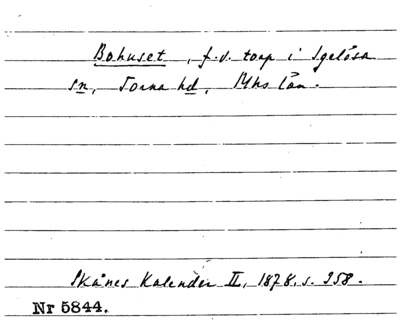 Bohuset, f.d. torp i Igelösa
sn, Torna hd, Mhs län.
Skånes Kalender II, 1878, s. 358.
Nr 5844.